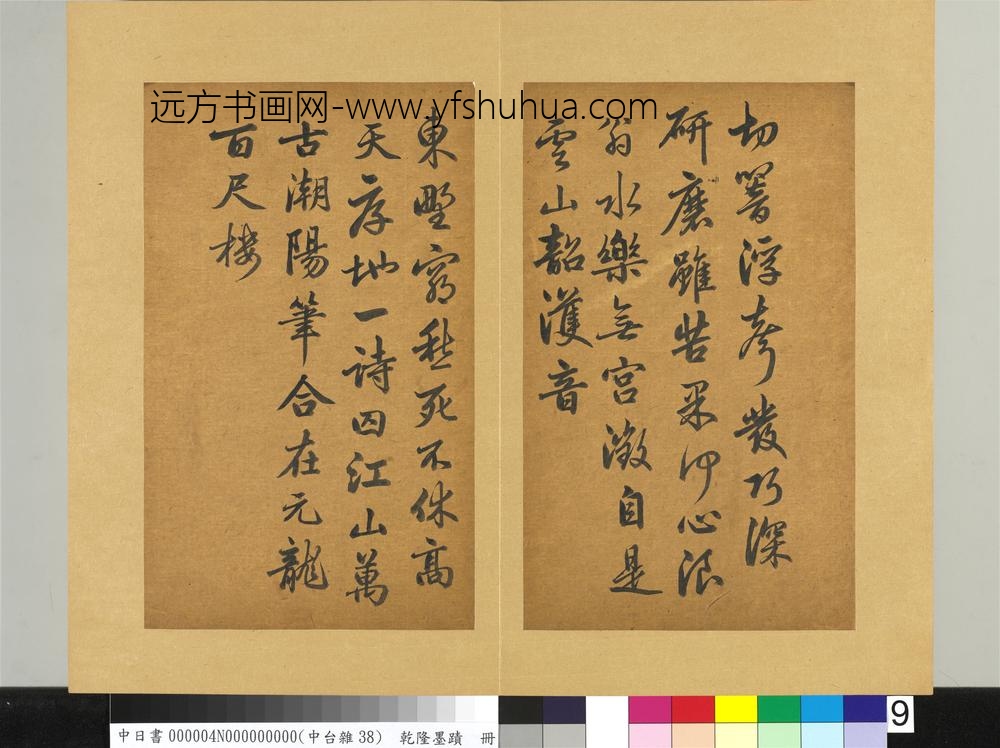 远方书画网-www.yfshuhua.com
切響浮聲發巧深
研磨雖苦果何心浪
翁水樂無宮徵自是
雲山韶濩音
東野窮愁死不休高
天厚地一詩囚江山萬
古潮陽筆合在元龍
百尺樓
中日書 000004N000000000(中台雜 38) 乾隆墨蹟 冊
9